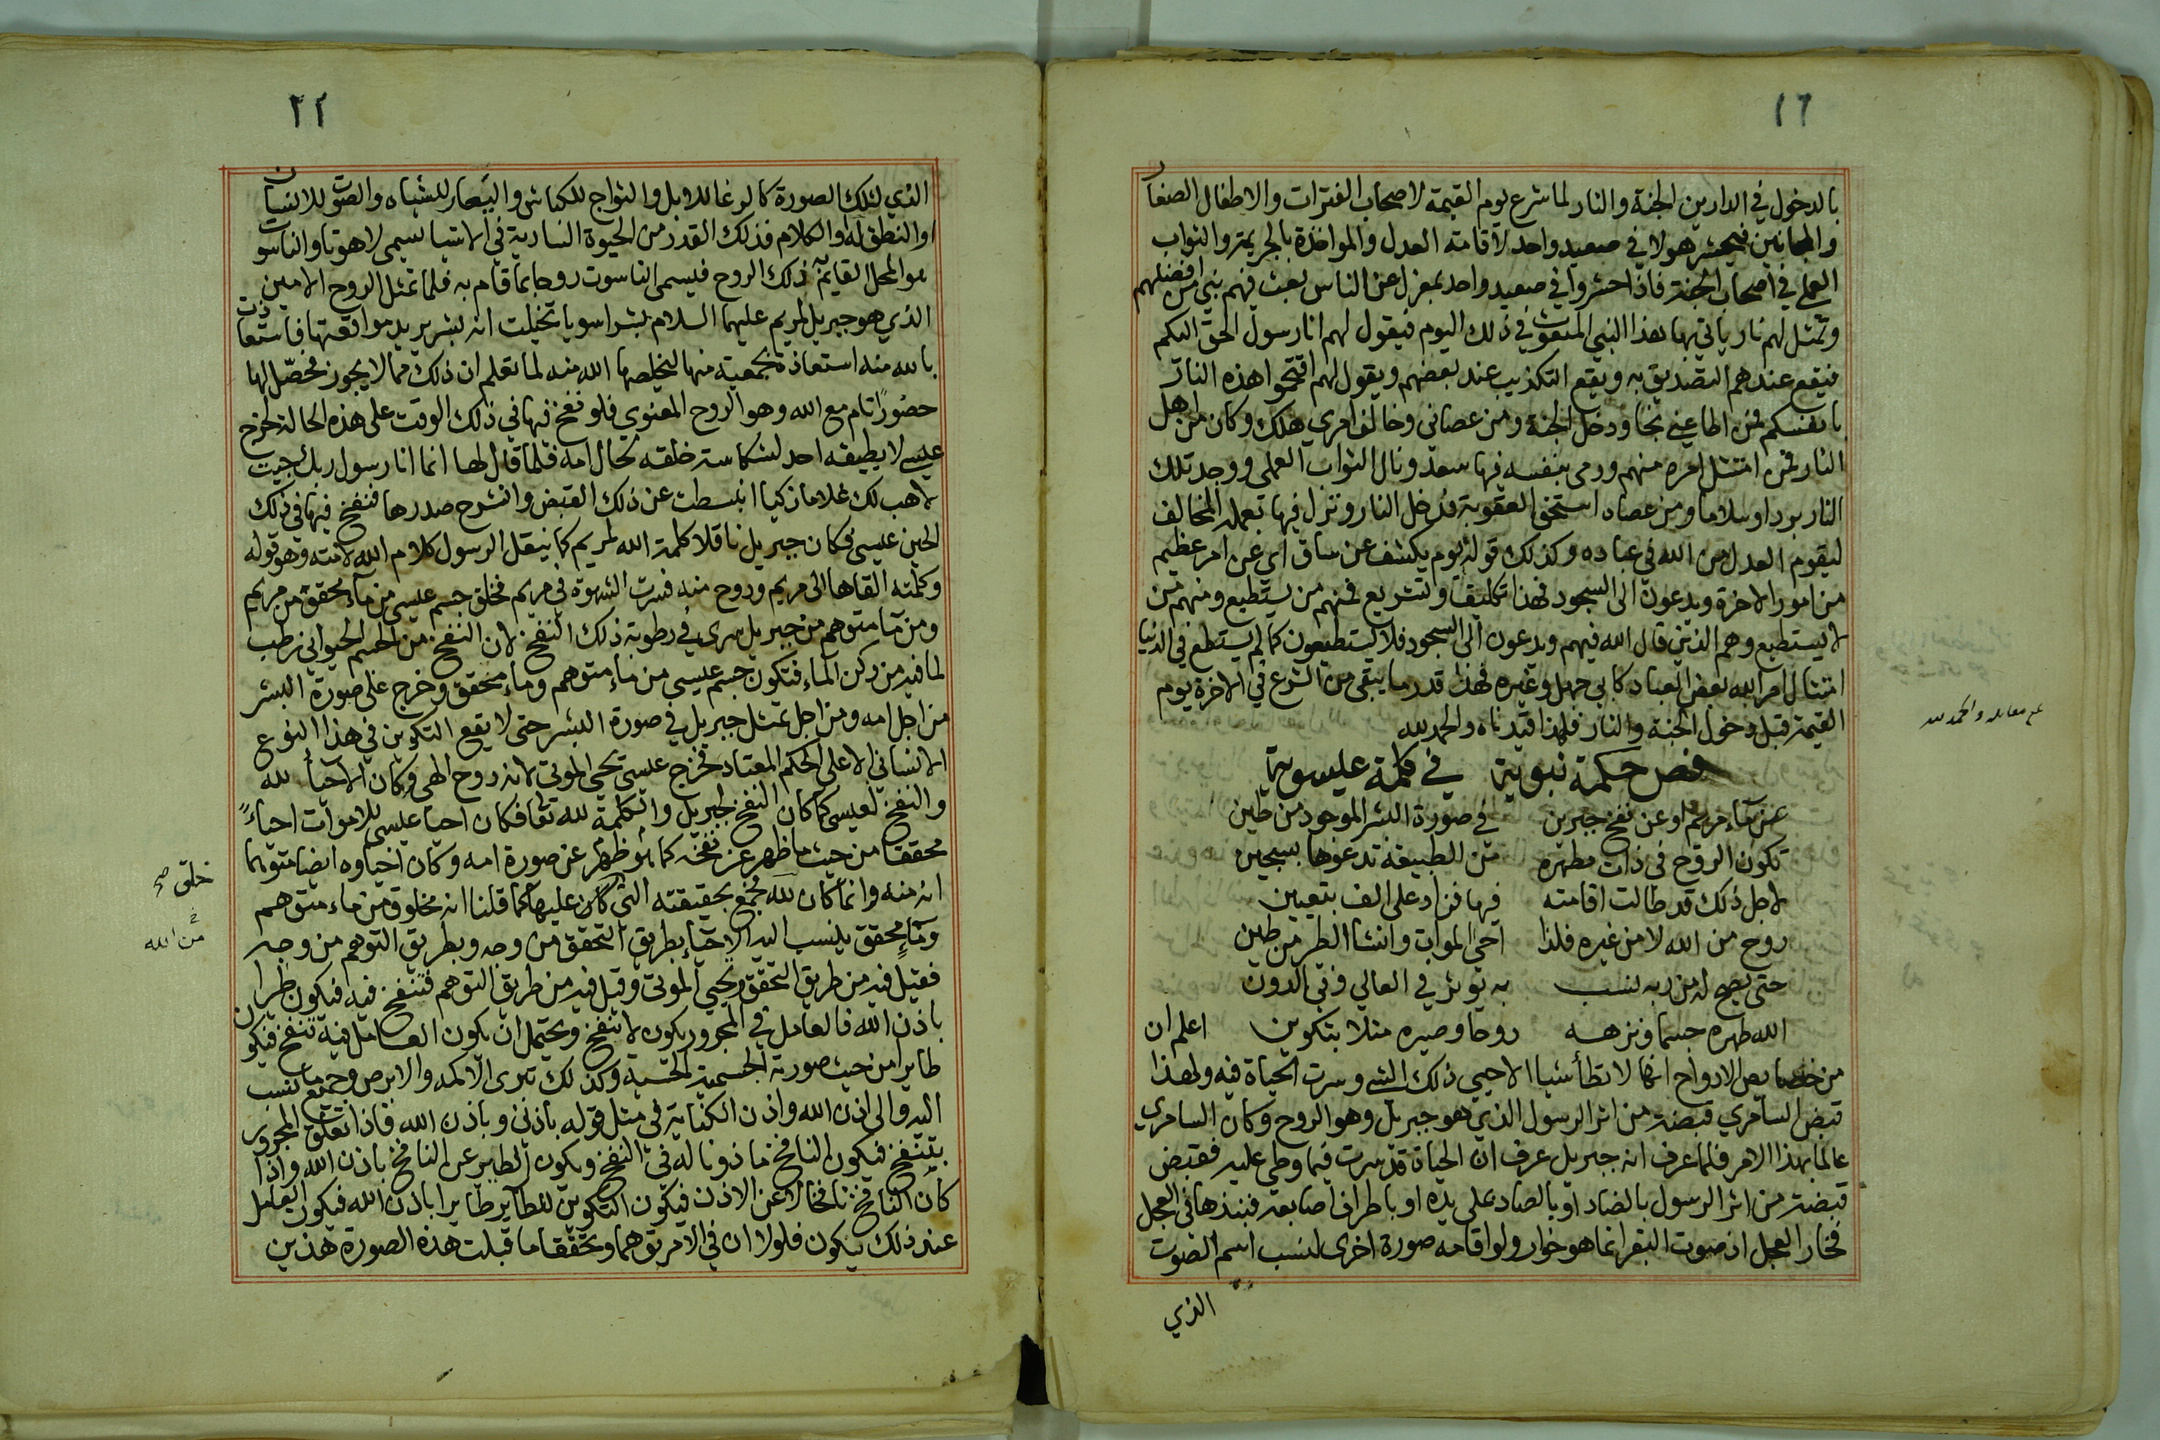 ١٦
بالدخول في الدارين الجنة والنار لما شرع يوم القيمة لاصحاب الفترات والاطفال الصغار
والمجانين فيحشر هولا في صعيد واحد لاقامته العدل والمواخذة بالجريمة والثواب
العملي في اصحاب الجنة فاذا حشروا في صعيد واحد بمعزل عن الناس بعث فيهم نبي من افضلهم
وتمثل لهم نار ياتي بها هذا النبي المبعوث في ذلك اليوم فيقول لهم انا رسول الحق اليكم
فيقع عندهم التصديق به ويقع التكذيب عند بعضهم ويقول لهم اقتحموا هذه النار
بانفسكم فمن اطاعني نجا ودخل الجنة ومن عصاني وخالف امري هلك وكان من اهل
النار فمن امتثل امره منهم ورمى بنفسه فيها سعد ونال الثواب العملي ووجد تلك
النار بردا وسلاما ومن عصاه استحق العقوبة فدخل النار ونزل فيها بعمله المخالف
ليقوم العدل من الله في عباده وكذلك قوله يوم يكشف عن ساق اي عن امر عظيم
من امور الاخرة ويدعون الى السجود فهذا تكليف وتشريع فمنهم من يستطيع ومنهم من
لا يستطيع وهم الذين قال الله فيهم ويدعون الى السجود فلا يستطيعون كما لم يستطع في الدنيا
امتثال امر الله بعض العباد كابي جهل وغيره فهذا قدر ما يبقى من الشرع في الاخرة يوم
القيمة قبل دخول الجنة والنار فلهذا قيدناه والحمد لله
فص حكمة نبوية في كلمة عيسوية
عن ماء مريم او عن نفخ جبرين في صورة البشر الموجود من طين
تكون الروح في ذات مطهره من الطبيعة تدعوها بسجين
لاجل ذلك قد طالت اقامته فيها فزاد على الف بتعيين
روح من الله لا من غيره فلذا احي الموات وانشا الطير من طين
حتى يصح له من ربه نسب به يوثر في العالي وفي الدون
الله طهره جسما ونزهه روحا وصيره مثلا بتكوين اعلم ان
من خصايص الارواح انها لا تطأ شيا الا حيي ذلك الشي وسرت الحياة فيه ولهذا
قبض السامري قبضة من اثر الرسول الذي هو جبريل وهو الروح وكان السامري
عالما بهذا الامر فلما عرف انه جبريل عرف ان الحياة قد سرت فيما وطي عليه فقبض
قبضة من اثر الرسول بالضاد او بالصاد على يده او باطراف اصابعه فنبذها في العجل
فخار العجل اذ صوت البقر انما هو خوار ولو اقامه صورة اخرى لنسب اسم الصوت
الذي
والحمد لله
٢٢
الذي لتلك الصورة كالرغا للابل والثواج للكباش واليعار للشياه والصوت للانسان
او النطق له والكلام فذلك القدر من الحيوة السارية في الاشيا يسمى لاهوتا والناسوت
هو المحل القايم به ذلك الروح فيسمى الناسوت روحا بما قام به فلما تمثل الروح الامين
الذي هو جبريل لمريم عليهما السلام بشرا سويا تخيلت انه بشر يريد مواقعتها فاستعاذت
بالله منه استعاذة بجمعية منها ليخلصها الله منه لما تعلم ان ذلك مما لا يجوز فحصل لها
حضورا تام مع الله وهو الروح المعنوي فلو نفخ فيها في ذلك الوقت على هذه الحالة لخرج
عيسى لا يطيقه احد لشكاسة خلقه لحال امه فلما قال لها انما انا رسول ربك جيت
لاهب لك غلاما زكيا انبسطت عن ذلك القبض وانشرح صدرها فنفخ فيها في ذلك
الحين عيسى فكان جبريل ناقلا كلمة الله لمريم كما ينقل الرسول كلام الله لامته وهو قوله
وكلمته القاها الى مريم وروح منه فسرت الشهوة في مريم فخلق جسم عيسى من ماء محقق من مريم
ومن ماء متوهم من جبريل سرى في رطوبة ذلك النفخ لان النفخ من الجسم الحيواني رطب
لما فيه من ركن الماء فتكون جسم عيسى من ماء متوهم وماء محقق وخرج على صورة البشر
من اجل امه ومن اجل تمثل جبريل في صورة البشر حتى لا يقع التكوين في هذا النوع
الانساني الا على الحكم المعتاد فخرج عيسى يحيى الموتى لانه روح الهي وكان الاحياء لله
والنفخ لعيسى كما كان النفخ لجبريل والكلمة لله تعا فكان احيا عيسى للاموات احياءً
محققا من حيث ما ظهر عن نفخه كما هو ظهر عن صورة امه وكان احياوه ايضا متوهما
انه منه وانما كان لله فجمع بحقيقته التي كان عليها كما قلنا انه مخلوق من ماء متوهم
وماء محقق ينسب اليه الاحيا بطريق التحقق من وجه وبطريق التوهم من وجه
فقيل فيه من طريق التحقق ويحيي الموتى وقيل فيه من طريق التوهم فتنفخ فيه فيكون طيرا
باذن الله فالعامل في المجرور يكون لا تنفخ ويحتمل ان يكون العامل فيه تنفخ فيكون
طايرا من حيث صورته الجسمية الحسية وكذلك تبرى الاكمه والابرص وجميع ما ينسب
اليه والى اذن الله واذن الكناية في مثل قوله باذني وباذن الله فاذا تعلق المجرور
بتنفخ فيكون النافخ ماذونا له في النفخ ويكون الطاير عن النافخ باذن الله واذا
كان النافخ نافخا لا عن الاذن فيكون التكوين للطاير طايرا باذن الله فيكون العامل
عند ذلك يكون فلولا ان في الامر توهما وتحققا ما قبلت هذه الصورة هذين
خلق صح
من الله